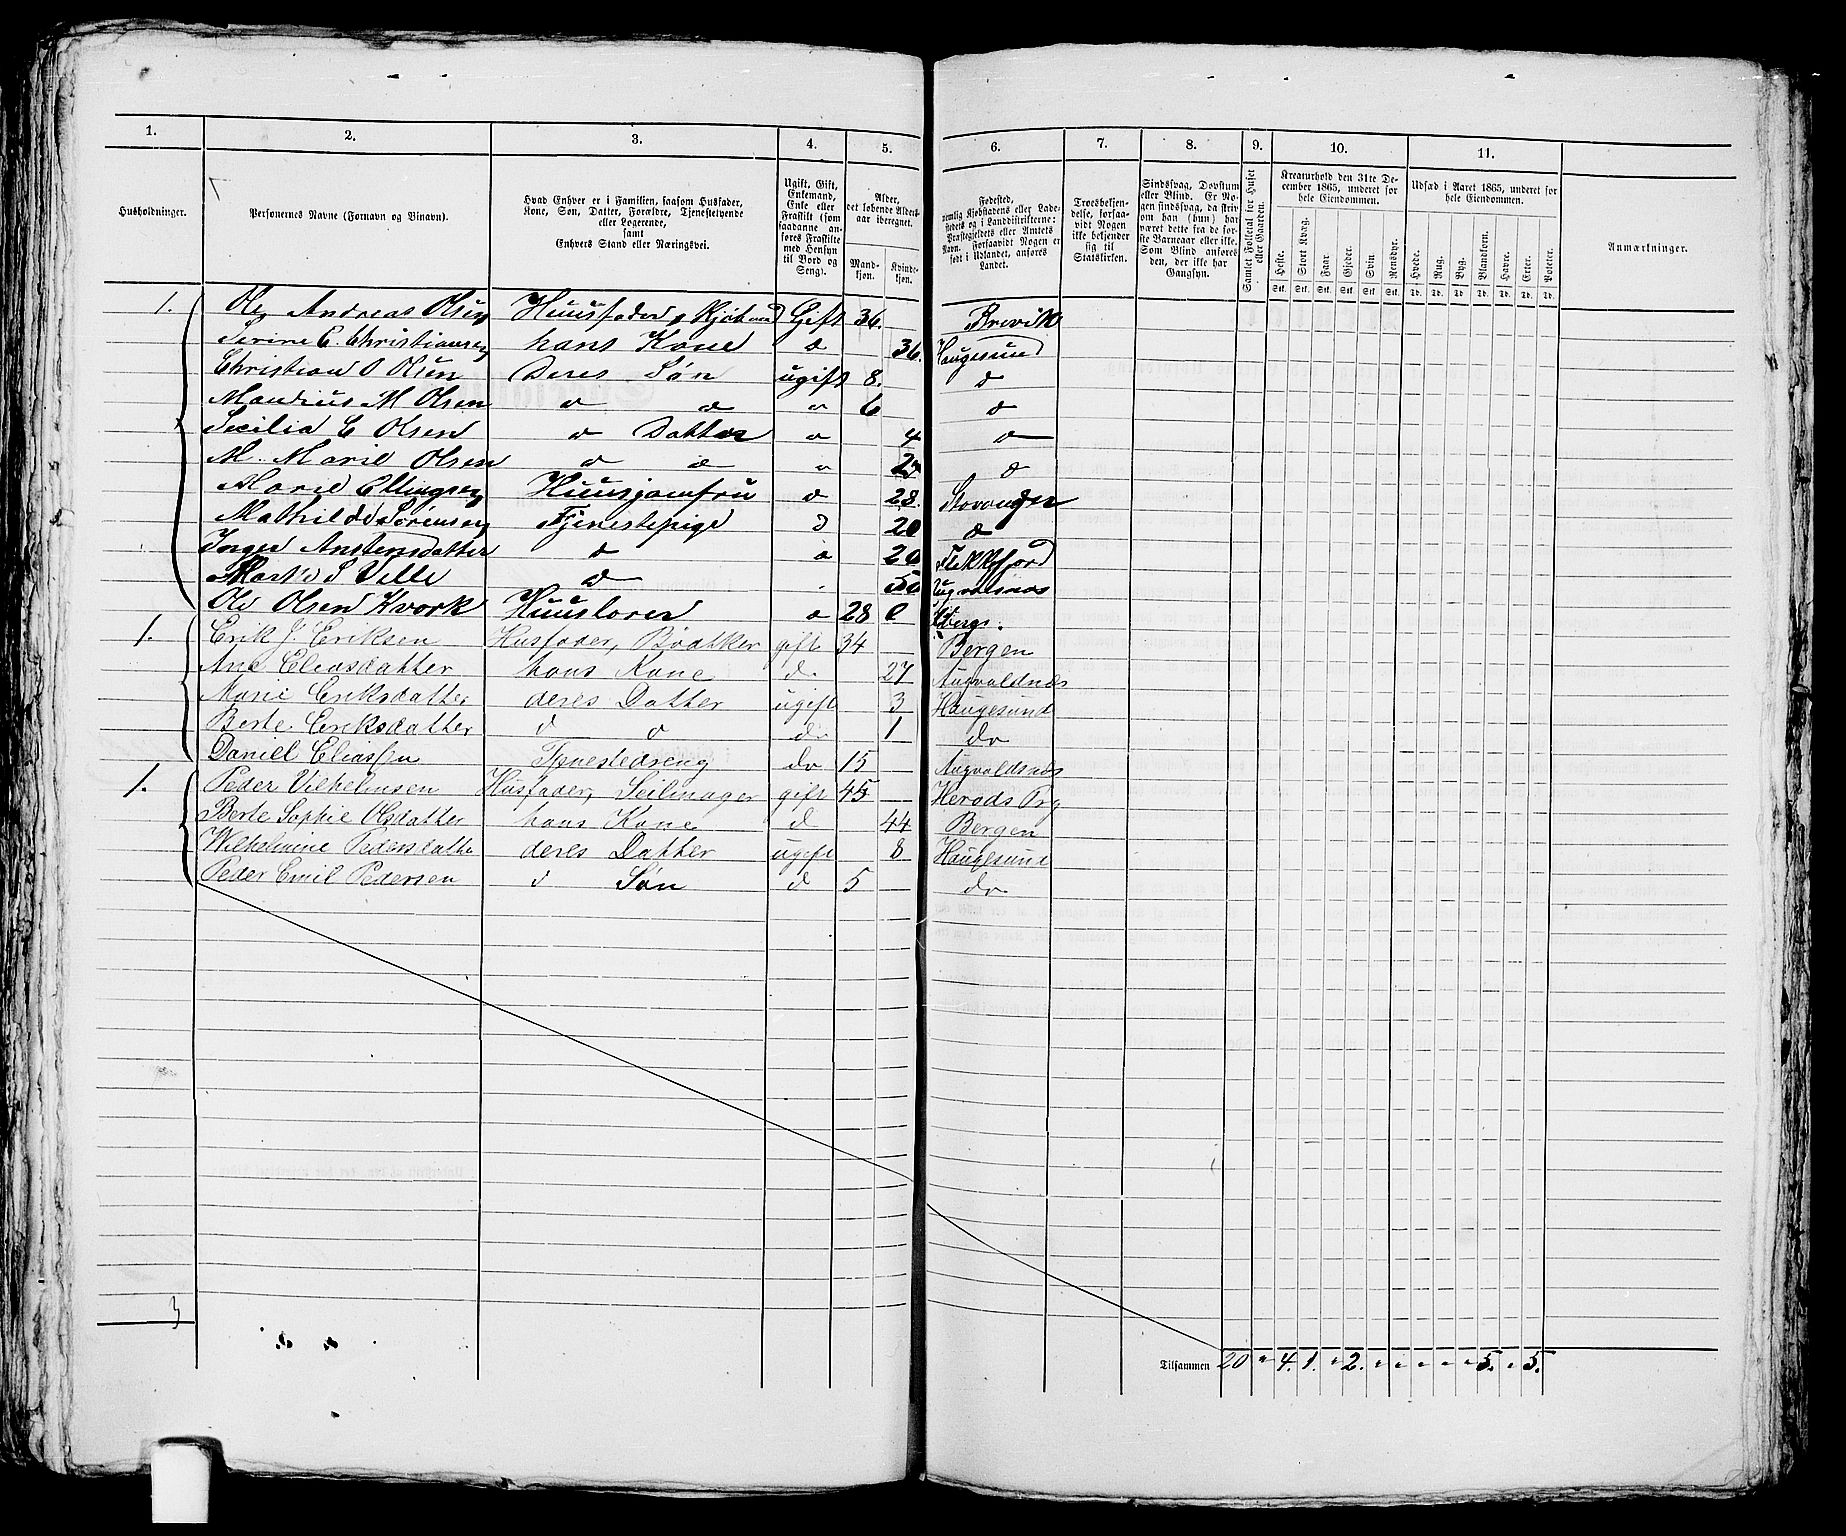 1. 2. 3. 4. 5. 6. 7. 8. 9. 10. 11.
Husholdninger.
Personernes Navne (Fornavn og Vinavn).
Hvad Enhver er i Familien, saasom Husfader, Kone, Søn, Datter, Forældre, Tjenestetyende eller Logerende, samt Enhvers Stand eller Næringsvei.
Ugift, Gift, Enkemand, Enke eller Fraskilt (som saadanne anføres Fraskilte med Hensyn til Bord og Seng).
Alder, det løbende Aldersaar iberegnet.
Mandkjøn. Kvindekjøn.
Fødested,
nemlig Kjøbstadens eller Ladestedets og i Landdistrikterne: Præstegjeldets eller Amtets Navn. Forsaavidt Nogen er født i Udlandet, anføres Landet.
Troesbekjendelse, forsaavidt Nogen ikke bekjender sig til Statskirken.
Sindssvag, Døvstum eller Blind. Er Nogen sindssvag, da skrives om han (hun) har været dette fra de første Barneaar eller ikke. Som Blind anføres den, der ikke har Gangsyn.
Samlet Folketal for Huset eller Gaarden.
Kreaturhold den 31te December 1865, underet for hele Eiendommen.
Heste. Stort Kvæg. Faar. Gjeder. Svin. Rensdyr.
Stk. Stk. Stk. Stk. Stk. Stk.
Udsæd i Aaret 1865, underet for hele Eiendommen.
Hvede. Rug. Byg. Blandkorn. Havre. Erter. Poteter.
Td. Td. Td. Td. Td. Td. Td.
Anmærkninger.
1. Ole Andreas Olsen Huusfader Kjøbmd Gift 36. Brevik
Serine E. Christiansen hans Kone d 36. Haugesund
Christian O Olsen Deres Søn ugift 8. d
Maudius M Olsen d d d 6 d
Secilia C Olsen d Datter d 4 d
M. Marie Olsen d d d d
Marie Ellingsen Huusjomfru d 28. Stavanger
Mathilde Sørensen Tjenestepige d 20 d
Inger Anstensdatter d d 20 Flekkefjord
S Velle d 50
Ole Olsen Kvork Huuslærer d 28
1. Erik J. Eriksen Husfader, Bødtker gift 34 Bergen
Ane Eliasdatter hans Kone d. 27 Augvaldnæs
Marie Eriksdatter deres Datter ugift 3 Haugesund
Berte Eriksdatter d d do 1 do
Daniel Eliassen Tjenestedreng do 15 Augvaldsnæs
1. Peder Vilhelmsen Husfader, Seilmager gift 45 Herøds Prg
Berte Sophie Olsdatter hans Kone d 44 Bergen
Wilhelmine Pedersdatte deres Datter ugift 8 Haugesund
Peder Emil Pedersen d Søn d 5 do
3
Tilsammen 20 " 4. 1. " 2. " " " " " 5. " 5.